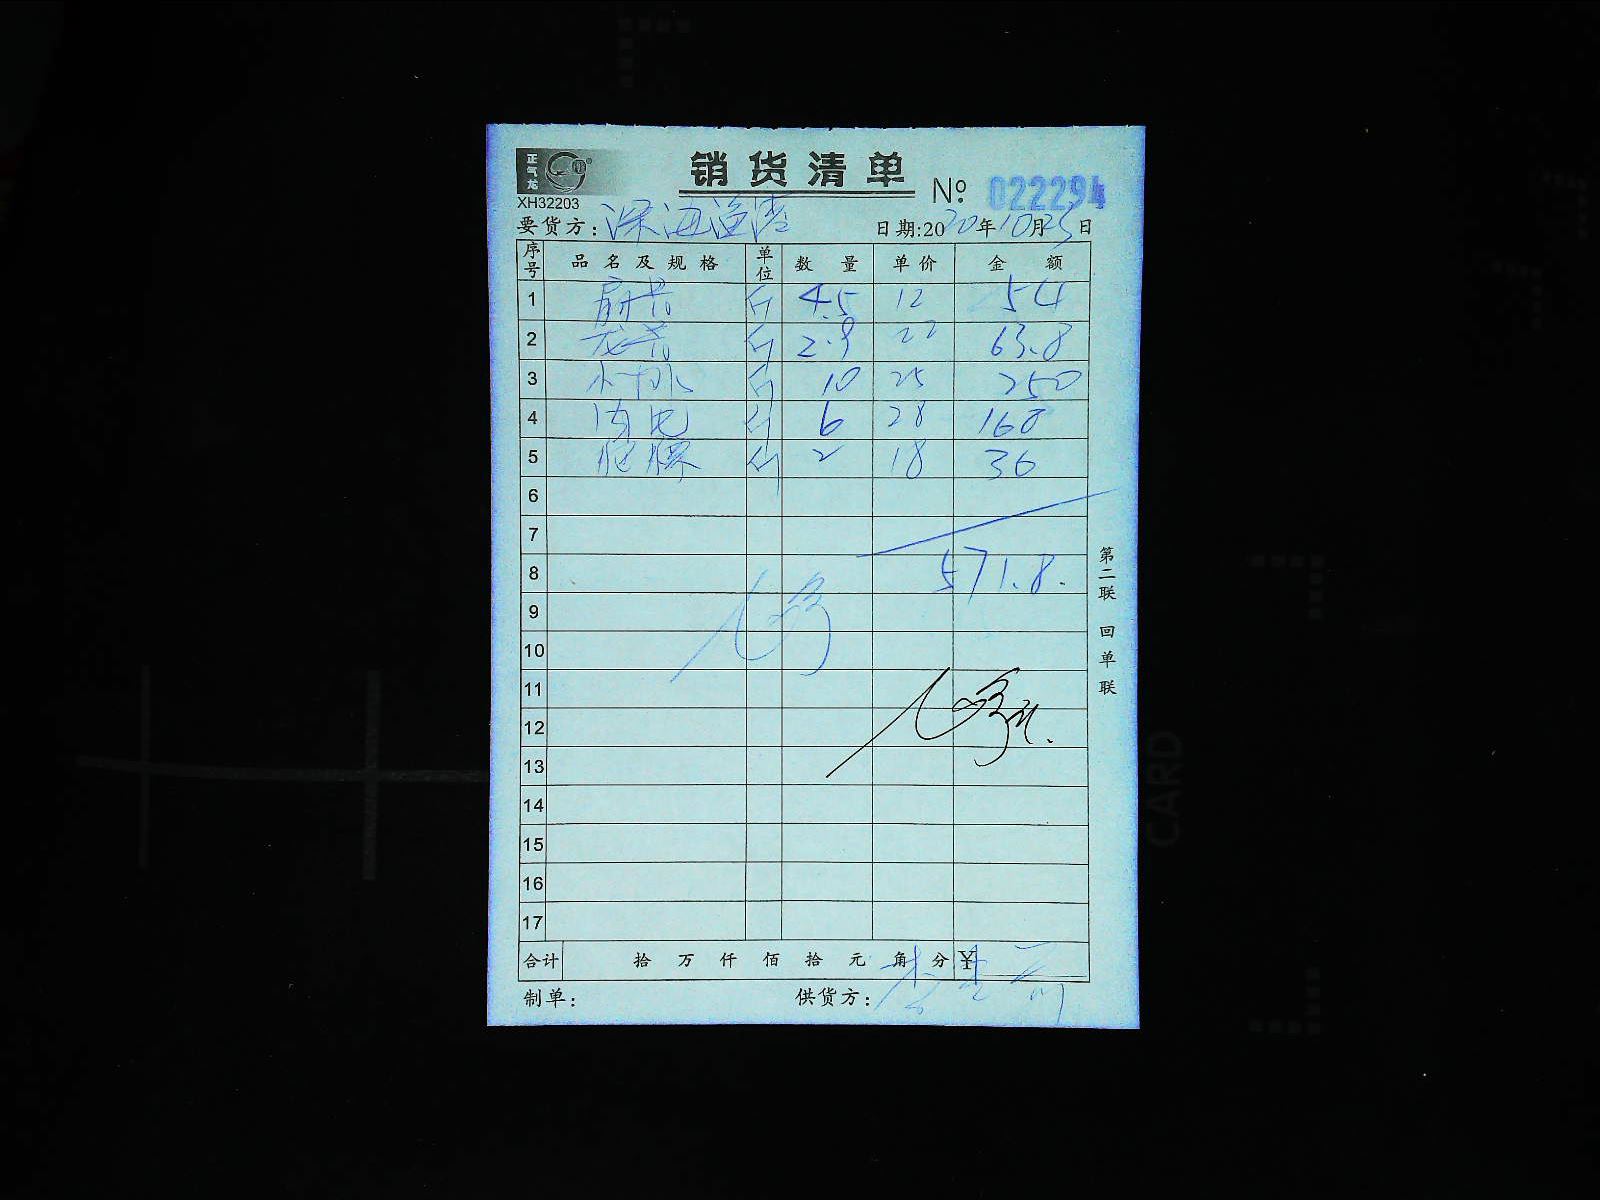 正气龙
销货清单
№ 022294
XH32203
要货方：深海渔湾 日期:2020年10月23日
序号 品名及规格 单位 数量 单价 金额
1 斤 4.5 12 54
2 斤 2.9 22 63.8
3 小排 斤 10 25 250
4 斤 6 28 168
5 斤 2 18 36
6
7
8 571.8.
9
10
11
12
13
14
15
16
17
合计 拾 万 仟 佰 拾 元 角 分 ¥
制单： 供货方：
第二联 回单联
CARD